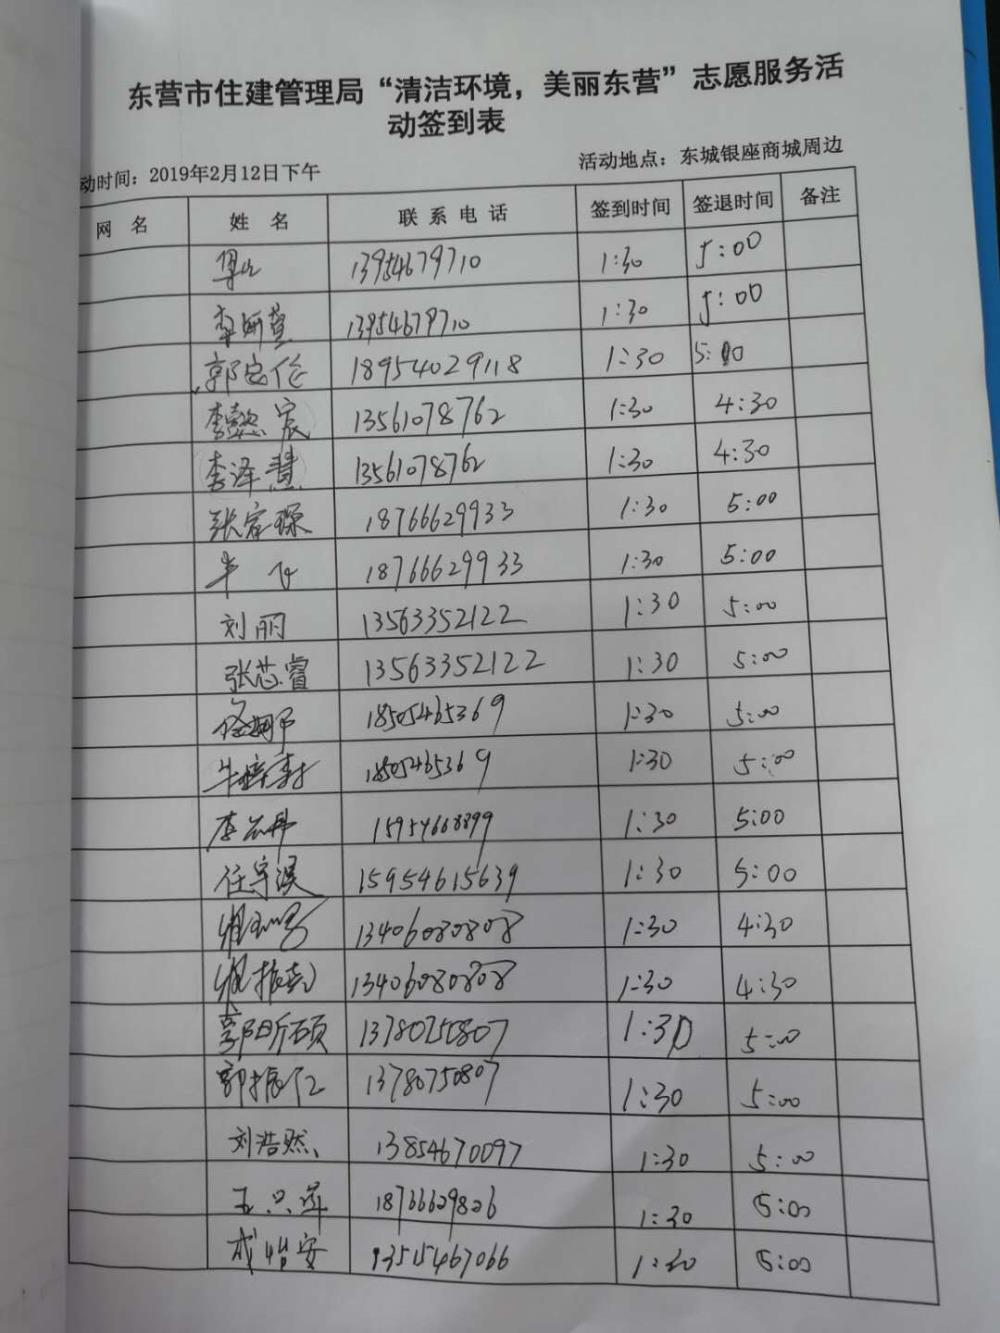 东营市住建管理局“清洁环境，美丽东营”志愿服务活
动签到表
动时间：2019年2月12日下午 活动地点：东城银座商城周边
网 名 姓 名 联 系 电 话 签到时间 签退时间 备注
13954679710 1:30 5:00
李妍萱 13954679710 1:30 5:00
郭忠伦 18954029118 1:30 5:00
李懿宸 13561078762 1:30 4:30
李泽慧 13561078762 1:30 4:30
张睿琛 18766629933 1:30 5:00
18766629933 1:30 5:00
刘丽 13563352122 1:30 5:00
张芯睿 13563352122 1:30 5:00
18505465369 1:30 5:00
18505465369 1:30 5:00
1:30 5:00
任宇淏 15954615639 1:30 5:00
13406080808 1:30 4:30
13406080808 1:30 4:30
郭昕硕 1:30 5:00
郭振仁 13780750807 1:30 5:00
刘浩然 13854670097 1:30 5:00
18766629826 1:30 5:00
成怡安 13515467066 1:30 5:00